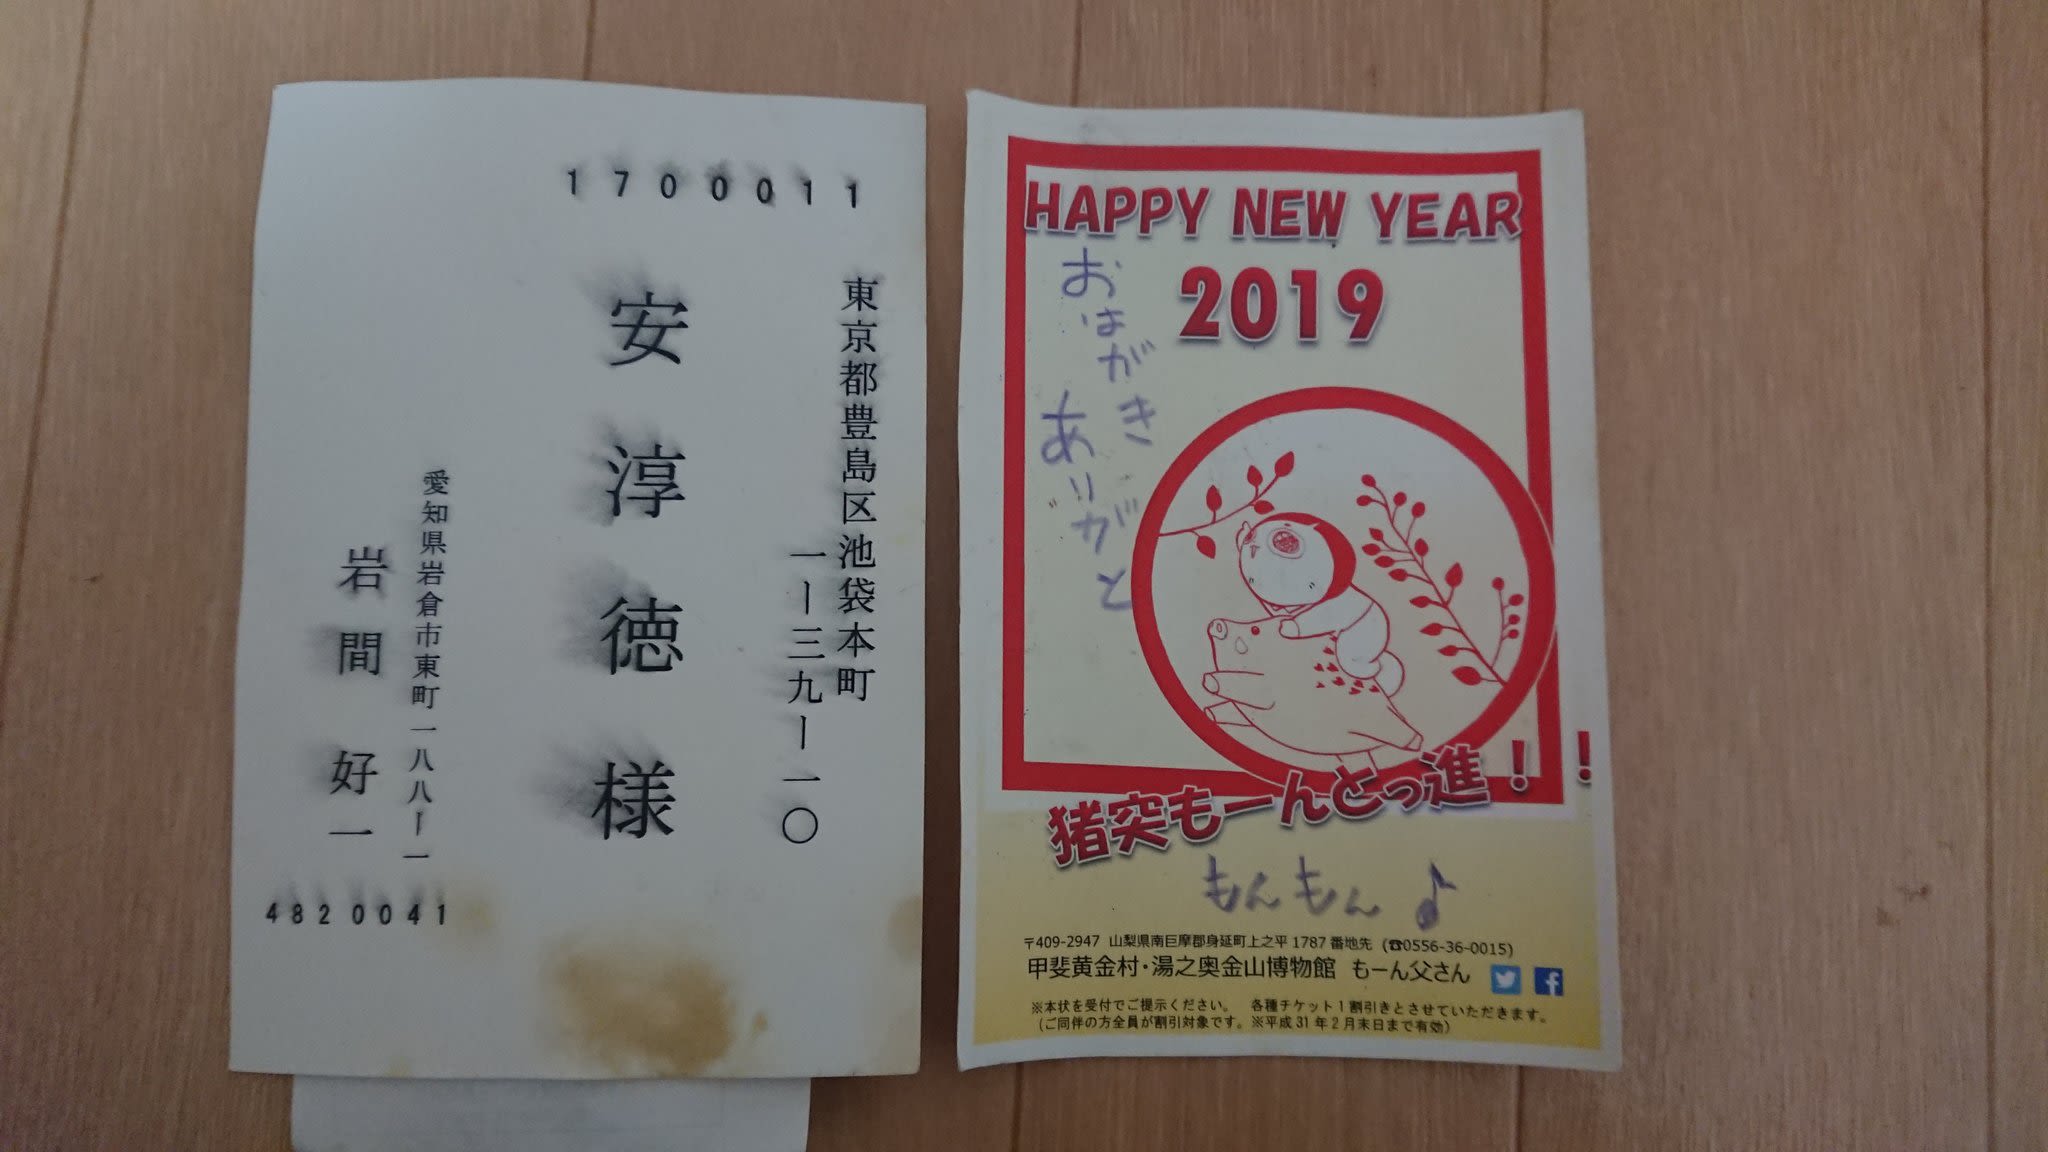 1700011
東京都豊島区池袋本町
一ー三九ー一〇
安淳徳様
愛知県岩倉市東町一八八ー一
岩間好一
4820041
HAPPY NEW YEAR
2019
おはがき
ありがと
猪突もーんとっ進！！
もんもん♪
〒409-2947 山梨県南巨摩郡身延町上之平1787番地先 (☎0556-36-0015)
甲斐黄金村・湯之奥金山博物館 もーん父さん
※本状を受付でご提示ください。 各種チケット1割引きとさせていただきます。
(ご同伴の方全員が割引対象です。※平成31年2月末日まで有効)